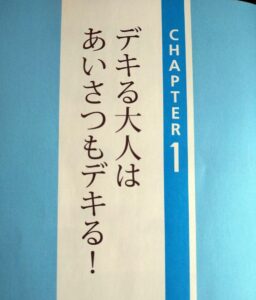 CHAPTER 1
デキる大人は
あいさつもデキる！